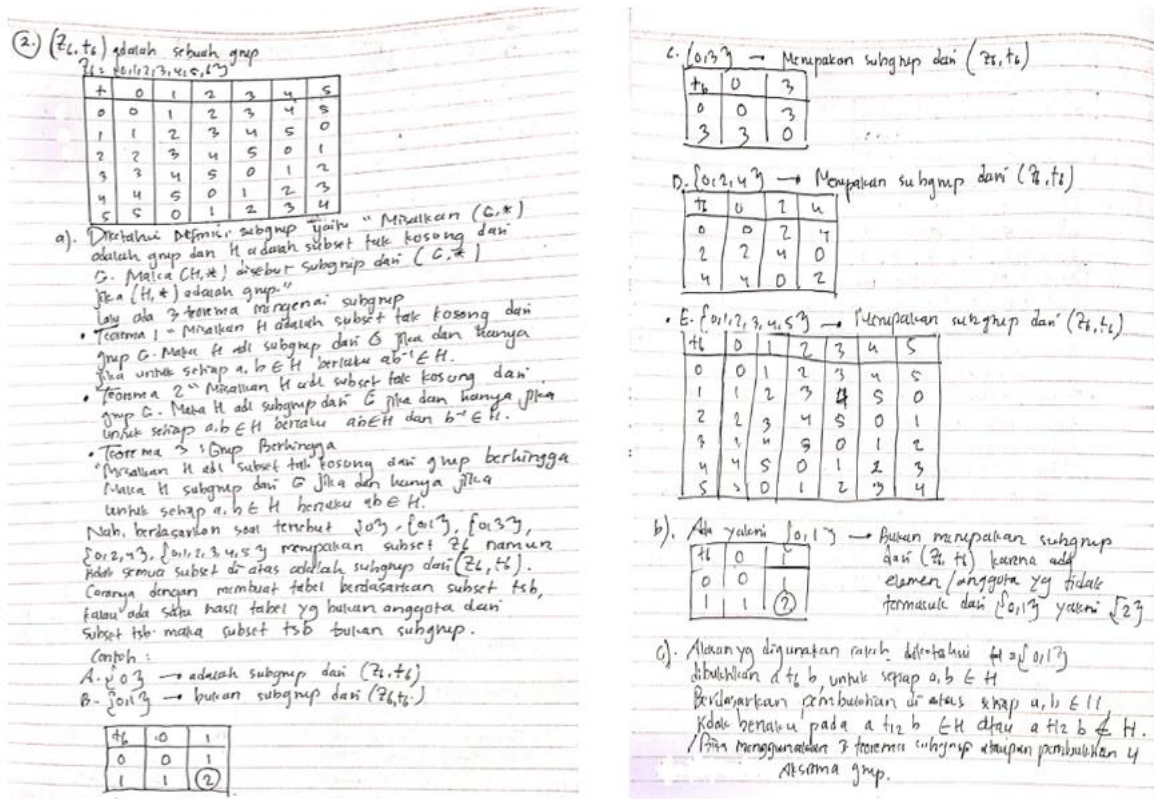 2.) (Z6, +6) adalah sebuah grup
Z6 = {0,1,2,3,4,5,6}
+ 0 1 2 3 4 5
0 0 1 2 3 4 5
1 1 2 3 4 5 0
2 2 3 4 5 0 1
3 3 4 5 0 1 2
4 4 5 0 1 2 3
5 5 0 1 2 3 4
a). Diketahui Definisi subgrup yaitu "Misalkan (G,*)
adalah grup dan H adalah subset tak kosong dari
G. Maka (H,*) disebut subgrup dari (G,*)
jika (H,*) adalah grup."
Lalu ada 3 teorema mengenai subgrup
• Teorema 1 "Misalkan H adalah subset tak kosong dari
grup G. Maka H adl subgrup dari G jika dan hanya
jika untuk setiap a, b ∈ H berlaku ab⁻¹ ∈ H.
• Teorema 2 "Misalkan H adl subset tak kosong dari
grup G. Maka H adl subgrup dari G jika dan hanya jika
untuk setiap a,b ∈ H berlaku ab∈H dan b⁻¹ ∈ H.
• Teorema 3 : Grup Berhingga
"Misalkan H adl subset tak kosong dari grup berhingga
Maka H subgrup dari G jika dan hanya jika
untuk setiap a, b ∈ H berlaku ab ∈ H.
Nah, berdasarkan soal tersebut {0}, {0,1}, {0,3},
{0,2,4}, {0,1,2,3,4,5} merupakan subset Z6 namun
tidak semua subset di atas adalah subgrup dari (Z6, +6).
Caranya dengan membuat tabel berdasarkan subset tsb,
kalau ada satu hasil tabel yg bukan anggota dari
subset tsb. maka subset tsb bukan subgrup.
Contoh :
A. {0} → adalah subgrup dari (Z6, +6)
B. {0,1} → bukan subgrup dari (Z6, +6.)
+6 0 1
0 0 1
1 1 2
C. {0,3} → Merupakan subgrup dari (Z6, +6)
+6 0 3
0 0 3
3 3 0
D. {0,2,4} → Merupakan subgrup dari (Z6, +6)
+6 0 2 4
0 0 2 4
2 2 4 0
4 4 0 2
• E. {0,1,2,3,4,5} → Merupakan subgrup dari (Z6, +6)
+6 0 1 2 3 4 5
0 0 1 2 3 4 5
1 1 2 3 4 5 0
2 2 3 4 5 0 1
3 3 4 5 0 1 2
4 4 5 0 1 2 3
5 5 0 1 2 3 4
b). Ada yakni {0,1} → Bukan merupakan subgrup
dari (Z6, +6) karena ada
elemen/anggota yg tidak
termasuk dari {0,1} yakni {2}
+6 0 1
0 0 1
1 1 2
c). Alasan yg digunakan diketahui H = {0,1}
dibuktikan a +6 b, untuk setiap a,b ∈ H
Berdasarkan pembuktian di atas setiap a,b ∈ H,
tidak berlaku pada a +12 b ∈ H atau a +12 b ∉ H.
/ Bisa menggunakan 3 teorema subgrup ataupun pembuktian 4
Aksioma grup.